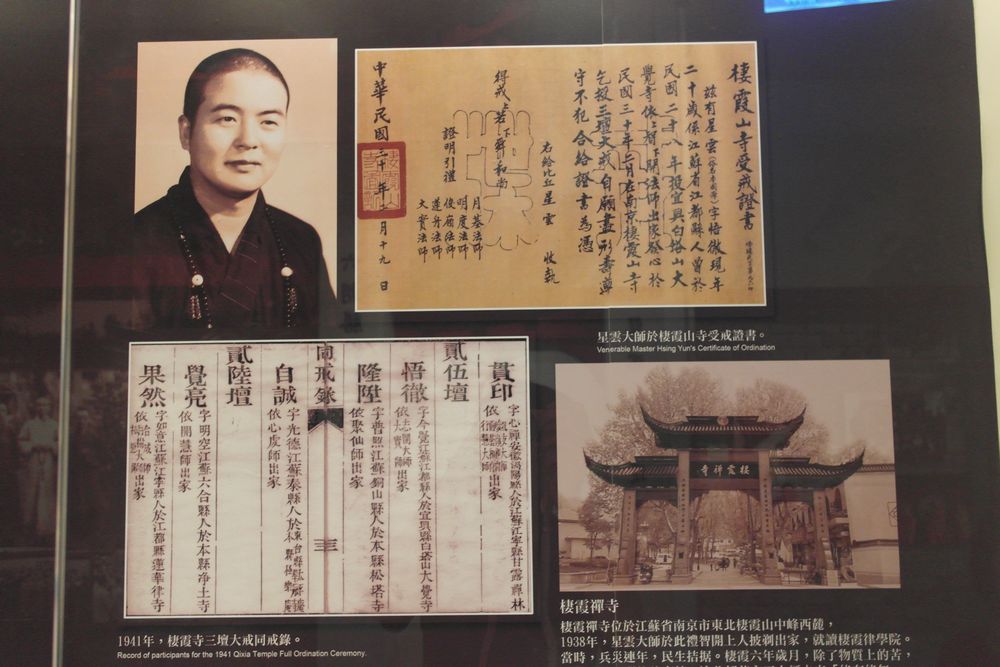 棲霞山寺受戒證書
茲有星雲
字悟徹現年
二十歲係江蘇省江都縣人曾於
民國二十八年投宜興白塔山大
覺寺依上智下開法師出家發心於
民國三十年二月在南京棲霞山寺
乞授三壇大戒自願盡形壽遵
守不犯合給證書為憑
右給比丘星雲 收執
得戒上若下舜和尚
證明引禮
月基法師
明度法師
俊廟法師
蓮舟法師
大實法師
中華民國三十年二月十九日
星雲大師於棲霞山寺受戒證書。
Venerable Master Hsing Yun's Certificate of Ordination
貫印
依
出家
貳伍壇
悟徹
字今覺江蘇江都縣人於宜興縣白塔山大覺寺
依志開大師出家
隆陞
字普照江蘇銅山縣人於本縣松塔寺
依聚仙師出家
同戒錄
三
自誠
字先德江蘇泰縣人於
依心虔師出家
貳陸壇
覺亮
字明空江蘇六合縣人於本縣淨土寺
依開慧師出家
果然
字如意江蘇江寧縣人於江都縣蓮華律寺
依
出家
1941年，棲霞寺三壇大戒同戒錄。
Record of participants for the 1941 Qixia Temple Full Ordination Ceremony.
棲霞禪寺
棲霞禪寺
棲霞禪寺位於江蘇省南京市東北棲霞山中峰西麓，
1938年，星雲大師於此禮智開上人披剃出家，就讀棲霞律學院。
當時，兵災連年，民生拮据。棲霞六年歲月，除了物質上的苦，